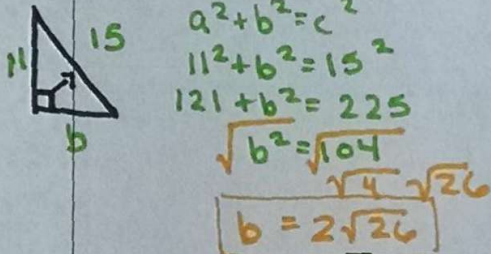 11
15
b
a²+b²=c²
11²+b²=15²
121+b²=225
√b²=√104
√4 √26
b=2√26